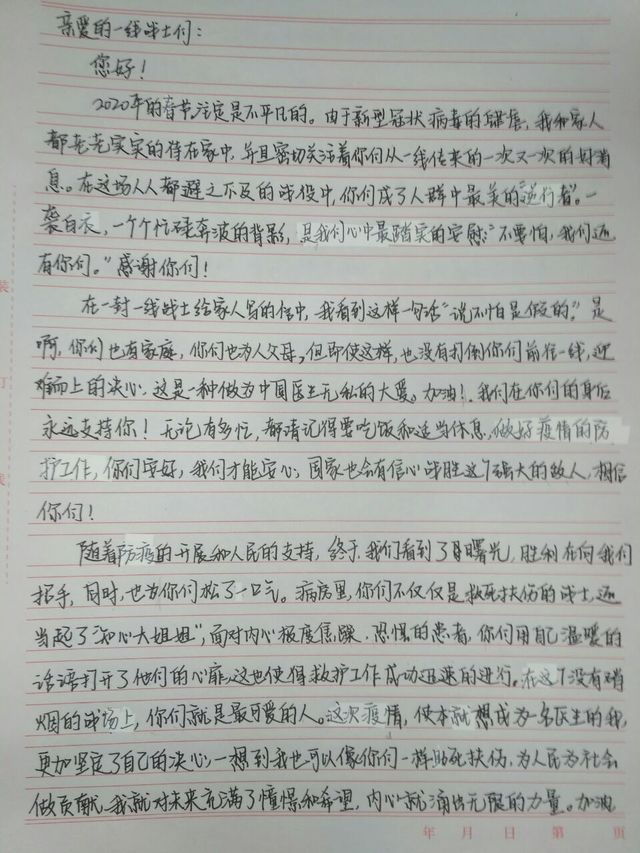 亲爱的一线战士们：
您好！
2020年的春节,注定是不平凡的。由于新型冠状病毒的肆虐，我和家人
都老老实实的待在家中，并且密切关注着你们从一线传来的一次又一次的好消
息。在这场人人都避之不及的战役中，你们成了人群中最美的“逆行者”。一
袭白衣，一个个忙碌奔波的背影，是我们心中最踏实的安慰：“不要怕，我们还
有你们。”感谢你们！
在一封一线战士给家人写的信中，我看到这样一句话“说不怕是假的。”是
啊，你们也有家庭，你们也为人父母，但即使这样，也没有打倒你们前往一线，迎
难而上的决心，这是一种做为中国医生无私的大爱。加油！我们在你们的身后
永远支持你！无论有多忙，都请记得要吃饭和适当休息，做好疫情的防
护工作，你们安好，我们才能安心，国家也会有信心战胜这个强大的敌人，相信
你们！
随着防疫的开展和人民的支持，终于，我们看到了曙光，胜利在向我们
招手，同时，也为你们松了一口气。病房里，你们不仅仅是救死扶伤的战士，还
当起了“知心大姐姐”，面对内心极度焦躁、恐惧的患者，你们用自己温暖的
话语打开了他们的心扉，这也使得救护工作成功迅速的进行。在这个没有硝
烟的战场上，你们就是最可爱的人。这次疫情，使本就想成为一名医生的我，
更加坚定了自己的决心，一想到我也可以像你们一样救死扶伤，为人民为社会
做贡献，我就对未来充满了憧憬和希望，内心就涌出无限的力量。加油
年 月 日 第 页
装
订
线